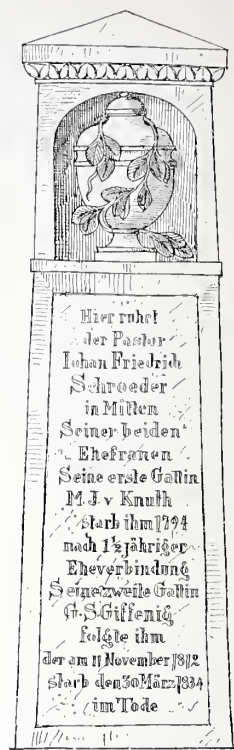 Hier ruhet
der Pastor
Iohan Friedrich
Schroeder
in Mitten
Seiner beiden
Ehefrauen
Seine erste Gattin
M. J. v Knuth
starb ihm 1794
nach 1½ jähriger
Eheverbindung
Seine zweite Gattin
G. S. Giffenig
folgte ihm
der am 11 November 1812
starb den 30 März 1834
im Tode